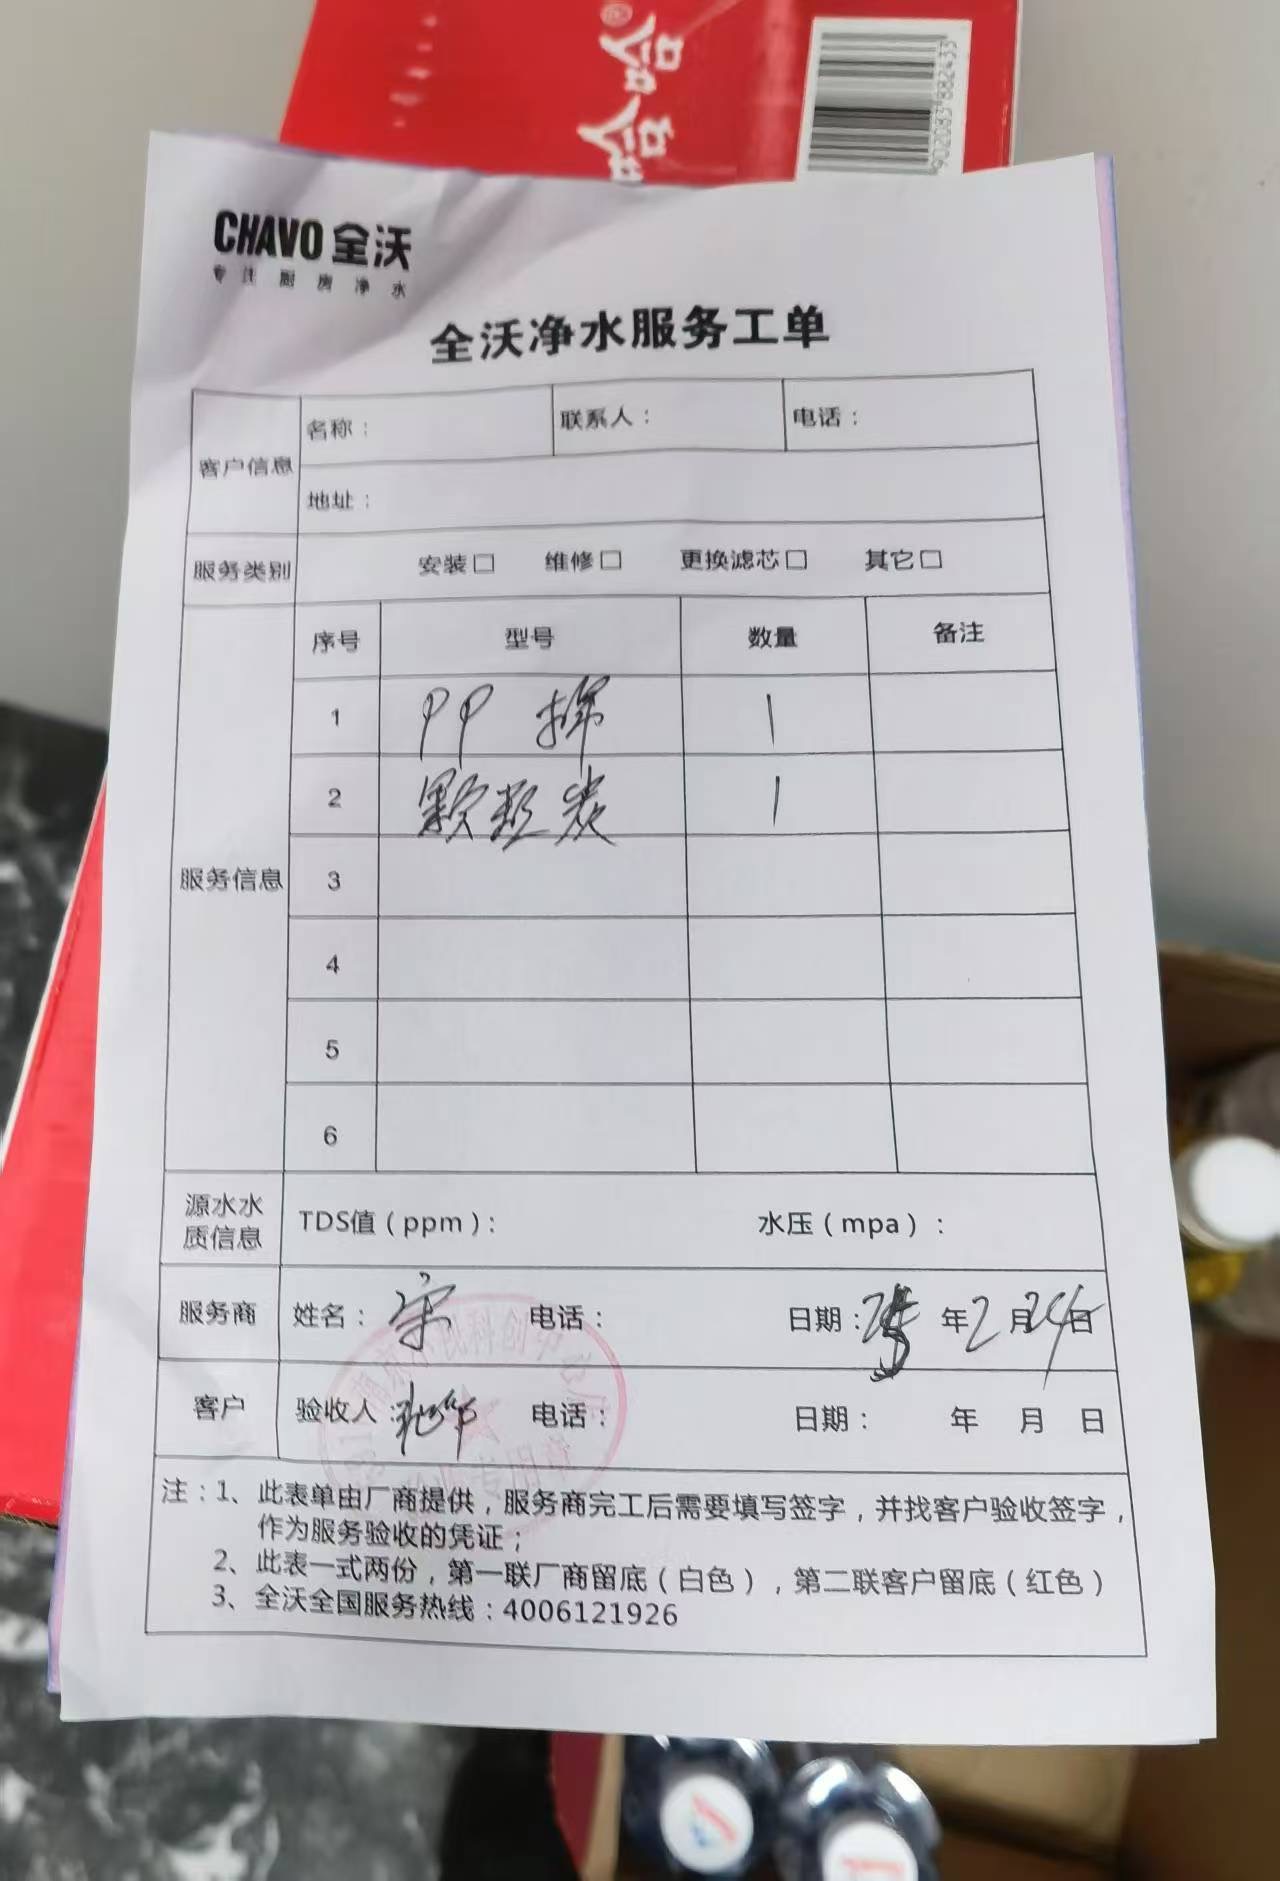 旺旺
902083 882433
CHAVO 全沃
专注厨房净水
全沃净水服务工单
客户信息 名称： 联系人： 电话：
地址：
服务类别 安装□ 维修□ 更换滤芯□ 其它□
服务信息 序号 型号 数量 备注
1 PP 棉 1
2 颗粒炭 1
3
4
5
6
源水水质信息 TDS值（ppm）： 水压（mpa）：
服务商 姓名：宋 电话： 日期：25年2月24日
客户 验收人： 电话： 日期： 年 月 日
注：1、此表单由厂商提供，服务商完工后需要填写签字，并找客户验收签字，
作为服务验收的凭证；
2、此表一式两份，第一联厂商留底（白色），第二联客户留底（红色）
3、全沃全国服务热线：4006121926